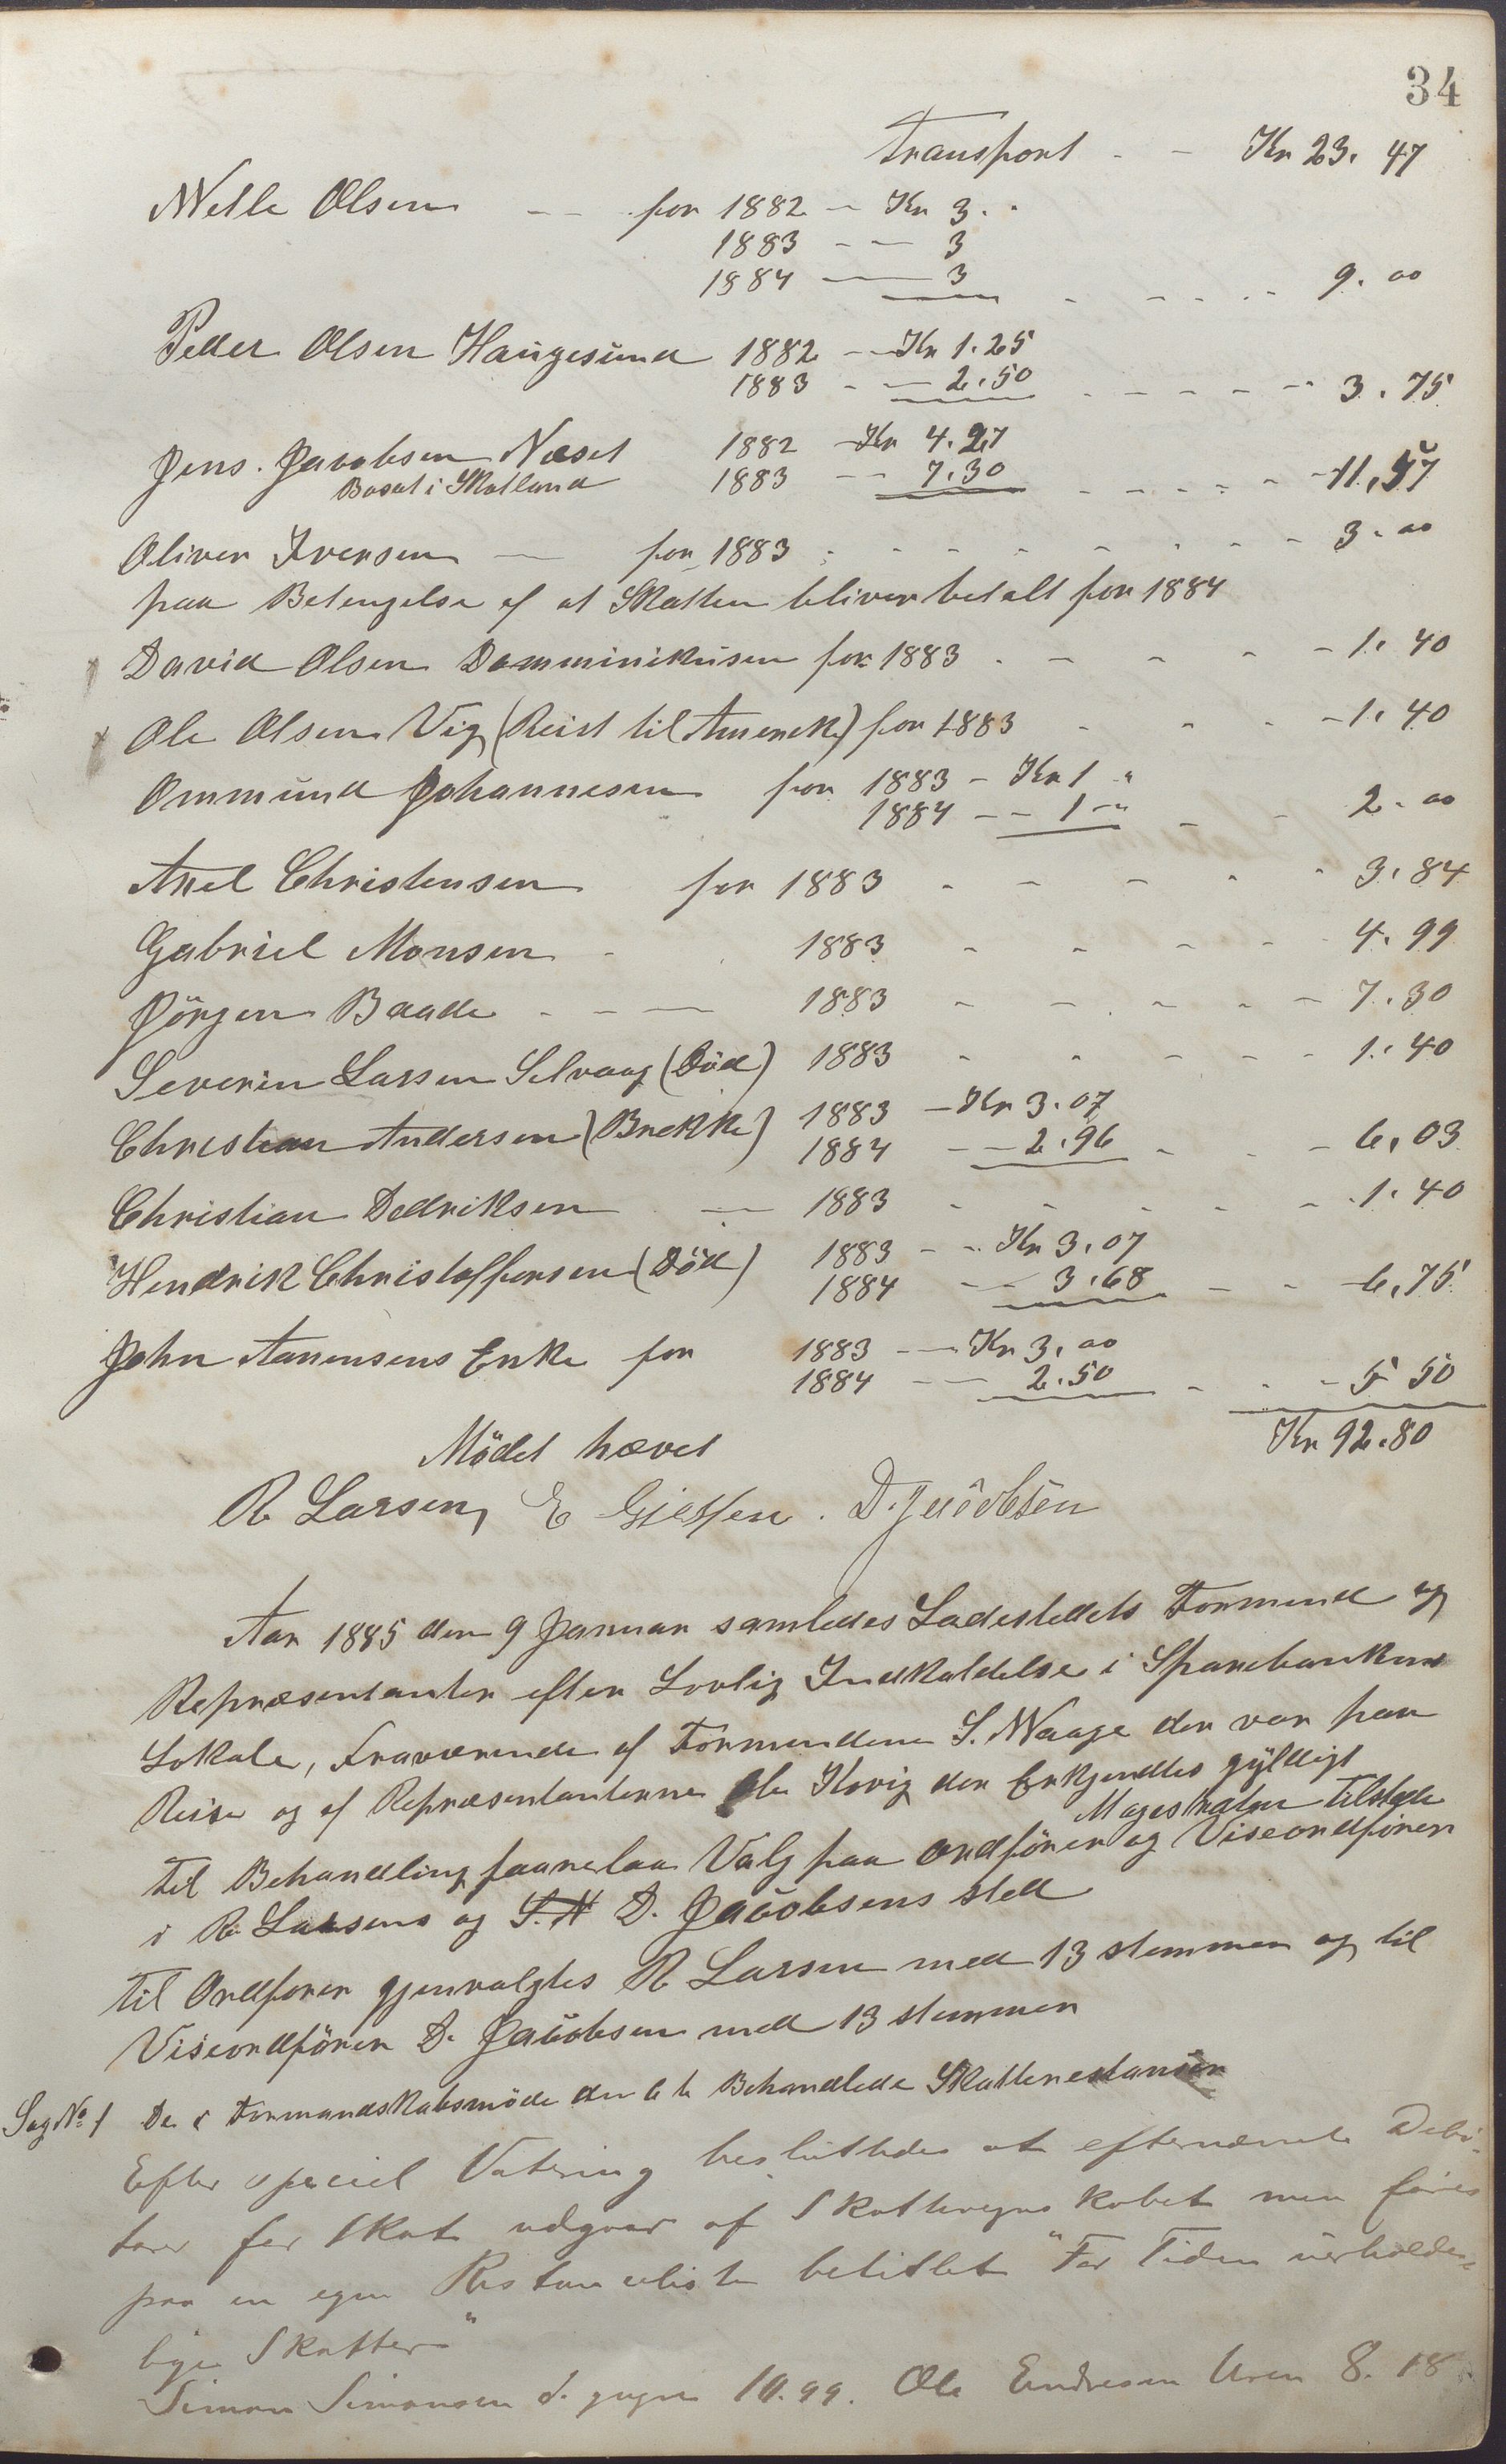 34
Transport - - Kr 23. 47
Nelle Olsen -- for 1882 - Kr 3. "
1883 -- 3
1884 -- 3 - - - - - 9. 00
Peder Olsen Haugesund 1882 -- Kr 1.25
1883 - - 2.50 - - - - - 3. 75
Jens. Jacobsen Næset 1882 - Kr 4.27
Bosat i Skotland 1883 -- 7.30 - - - - - 11,57
Oliver Iversen - for 1883 - - - - - - - 3. 00
paa Betingelse af at Skatten bliver betalt for 1884
David Olsen Domminikusen for 1883 - - - - 1. 40
Ole Olsen Vig (Reist til Amerika) for 1883 - - - 1. 40
Ommund Johannesen for 1883 - Kr 1 "
1884 -- 1 - " - - 2. 00
Axel Christensen for 1883 - - - - - 3. 84
Gabriel Monsen - 1883 - - - - 4. 99
Jörgen Baade - -- 1883 - - - - - 7. 30
Severin Larsen Selvaag (Död) 1883 - - - - - 1. 40
Christian Andersen (Brekke) 1883 - Kr 3.07
1884 -- 2.96 - - - 6, 03
Christian Dedriksen -- 1883 - - - - - 1. 40
Hendrik Christoffersen (Död) 1883 -- Kr 3,07
1884 -- 3.68 - - 6,75
John Aanensens Enke for 1883 -- Kr 3,00
1884 -- 2.50 - - - 5 50
Kr 92.80
Mödet hævet
R Larsen, E Gjessen. D. Jacobsen
Aar 1885 den 9 Januar samledes Ladestedets Formend og
Repræsentanter efter Lovlig Indkaldelse i Sparebankens
Lokale, Fraværende af Formendene S. Waage der var paa
Reise og af Repræsentanterne Ole Kovig der Erkjendtes gyldigt
Magestraten tilstede
Til Behandling foarelaa Valg paa Ordförer og Viseordförer
i R Larsens og S. H D. Jacobsens sted
Til Ordforer gjenvalgtes R Larsen med 13 stemmer og til
Viseordförer D. Jacobsen med 13 stemmer
Sag No 1 De i Formandskabsmöde den 6 te Behandlede Skatterestanser
Efter speciel Votering besluttedes at efternævnte Debi-
torer for Skat udgaar af Skatteregnskabet men föres
paa en egen Restanceliste betitlet "For Tiden uerholde-
lige Skatter"
Simon Simonsen 10.99. Ole Endresen Uren 8. 18